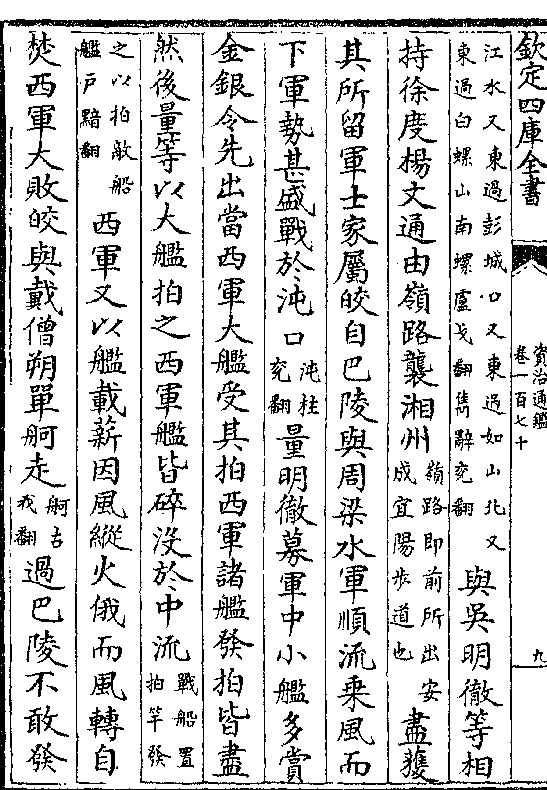 欽定四庫全書
資治通鑑
卷一百七十
九
江水又東過彭城口又東過如山北又
東過白螺山南螺盧戈翻雋辭兗翻
與吳明徹等相
持徐度楊文通由嶺路襲湘州
嶺路即前所出安
成宜陽步道也
盡獲
其所留軍士家屬皎自巴陵與周梁水軍順流乗風而
下軍勢甚盛戰於沌口
沌柱
兗翻
量明徹募軍中小艦多賞
金銀令先出當西軍大艦受其拍西軍諸艦發拍皆盡
然後量等以大艦拍之西軍艦皆碎沒於中流
戰船置
拍竿發
之以拍敵船
艦戶黯翻
西軍又以艦載薪因風縱火俄而風轉自
焚西軍大敗皎與戴僧朔單舸走
舸古
我翻
過巴陵不敢發